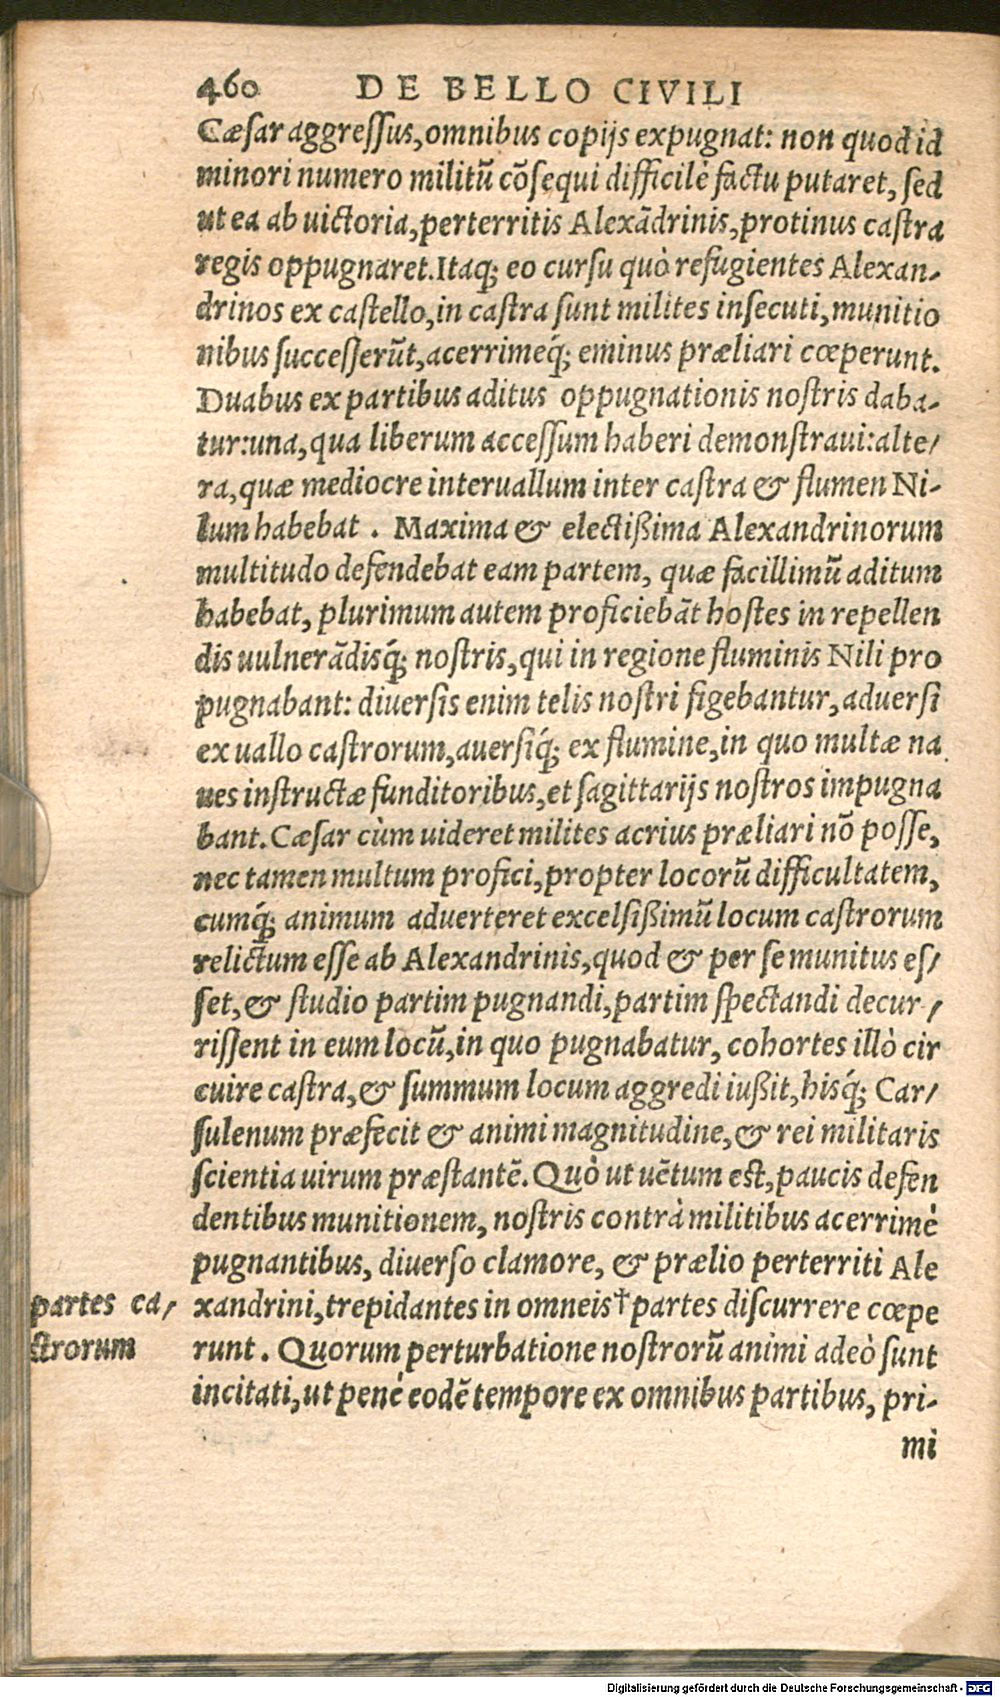 460 DE BELLO CIVILI
Cæsar aggressus, omnibus copijs expugnat: non quod id
minori numero militū cōsequi difficilè factu putaret, sed
ut ea ab uictoria, perterritis Alexādrinis, protinus castra
regis oppugnaret. Itaq; eo cursu quò refugientes Alexan-
drinos ex castello, in castra sunt milites insecuti, munitio
nibus successerūt, acerrimeq́; eminus præliari cœperunt.
Duabus ex partibus aditus oppugnationis nostris daba-
tur: una, qua liberum accessum haberi demonstraui: alte/
ra, quæ mediocre interuallum inter castra & flumen Ni-
lum habebat. Maxima & electißima Alexandrinorum
multitudo defendebat eam partem, quæ facillimū aditum
habebat, plurimum autem proficiebāt hostes in repellen
dis uulnerādisq́; nostris, qui in regione fluminis Nili pro
pugnabant: diuersis enim telis nostri figebantur, aduersi
ex uallo castrorum, auersiq́; ex flumine, in quo multæ na
ues instructæ funditoribus, et sagittarijs nostros impugna
bant. Cæsar cùm uideret milites acrius præliari nō posse,
nec tamen multum profici, propter locorū difficultatem,
cumq́; animum aduerteret excelsißimū locum castrorum
relictum esse ab Alexandrinis, quod & per se munitus es/
set, & studio partim pugnandi, partim spectandi decur-/
rissent in eum locū, in quo pugnabatur, cohortes illò cir
cuire castra, & summum locum aggredi iußit, hisq́; Car/
sulenum præfecit & animi magnitudine, & rei militaris
scientia uirum præstantē. Quò ut uētum est, paucis defen
dentibus munitionem, nostris contrà militibus acerrimè
pugnantibus, diuerso clamore, & prælio perterriti Ale
partes ca/ xandrini, trepidantes in omneis † partes discurrere cœpe
strorum runt. Quorum perturbatione nostrorū animi adeò sunt
incitati, ut penè eodē tempore ex omnibus partibus, pri-
mi
Digitalisierung gefördert durch die Deutsche Forschungsgemeinschaft - DFG